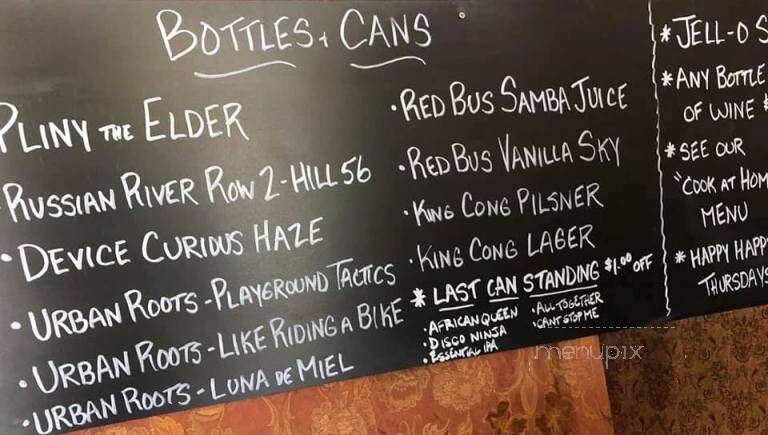 BOTTLES + CANS
PLINY THE ELDER
• RUSSIAN RIVER ROW 2 - HILL 56
• DEVICE CURIOUS HAZE
• URBAN ROOTS - PLAYGROUND TACTICS
• URBAN ROOTS - LIKE RIDING A BIKE
• URBAN ROOTS - LUNA DE MIEL
• RED BUS SAMBA JUICE
• RED BUS VANILLA SKY
• KING CONG PILSNER
• KING CONG LAGER
* LAST CAN STANDING $1.00 OFF
• AFRICAN QUEEN
• DISCO NINJA
• ESSENTIAL IPA
• ALL TOGETHER
• CANT STOP ME
* JELL-O S
* ANY BOTTLE
OF WINE $
* SEE OUR
"COOK AT HOM
MENU
* HAPPY HAPP
THURSDAYS
menupix